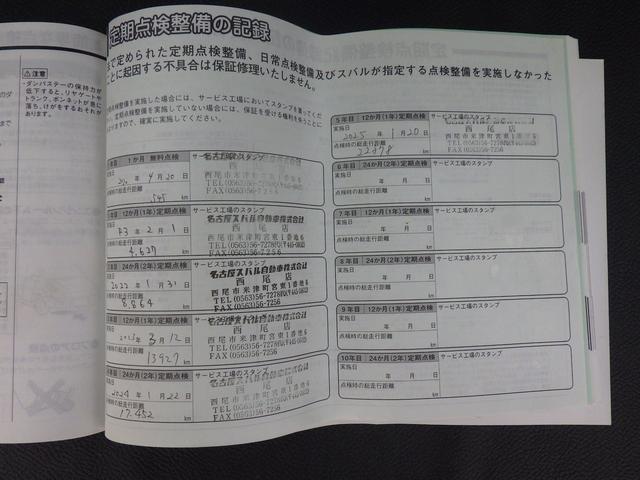 定期点検整備の記録
で定められた定期点検整備、日常点検整備及びスバルが指定する点検整備を実施しなかった
ことに起因する不具合は保証修理いたしません。
点検整備を実施した場合には、サービス工場においてスタンプを
定期点検整備を実施していない場合には、保証を受ける権利を失うことに
なりますので、確実に実施してください。
注意
・ダンパステーの保持力が
低下すると、リヤゲート
トランク、ボンネットが急に
落ち、けがをするおそれが
あります。
1か月 無料点検
サービス工場のスタンプ
実施日
4月20日
点検時の総走行距離
545 km
西尾市米津町宮東1番地6
TEL(0563)56-7278
FAX(0563)56-7
12か月(1年)定期点検
サービス工場のスタンプ
実施日
R3年2月1日
点検時の総走行距離
4,627 km
名古屋スバル自動車株式会社
西尾店
西尾市米津町宮東1番地6
TEL(0563)56-7278
FAX(0563)56-7252
24か月(2年)定期点検
サービス工場のスタンプ
実施日
2022年1月31日
点検時の総走行距離
8,864 km
名古屋スバル自動車株式会社
西尾店
西尾市米津町宮東1番地6
TEL(0563)56-7278
FAX(0563)56-7252
12か月(1年)定期点検
実施日
3月12日
点検時の総走行距離
13927 km
西尾店
西尾市米津町宮東1番地6
TEL(0563)56-7278
FAX(0563)56-7252
24か月(2年)定期点検
サービス工場のスタンプ
実施日
2024年1月22日
点検時の総走行距離
17,452 km
名古屋スバル自動車株式会社
西尾店
西尾市米津町宮東1番地6
TEL(0563)56-7278
FAX(0563)56-7252
5年目 12か月(1年)定期点検
実施日
2025年1月20日
点検時の総走行距離
22978 km
西尾店
西尾市米津町宮東1番地6
TEL(0563)56-7278
6年目 24か月(2年)定期点検
サービス工場のスタンプ
実施日
年 月 日
点検時の総走行距離
km
7年目 12か月(1年)定期点検
サービス工場のスタンプ
実施日
年 月 日
点検時の総走行距離
km
8年目 24か月(2年)定期点検
サービス工場のスタンプ
実施日
年 月 日
点検時の総走行距離
km
9年目 12か月(1年)定期点検
サービス工場のスタンプ
実施日
年 月 日
点検時の総走行距離
km
10年目 24か月(2年)定期点検
サービス工場のスタンプ
実施日
年 月 日
点検時の総走行距離
km